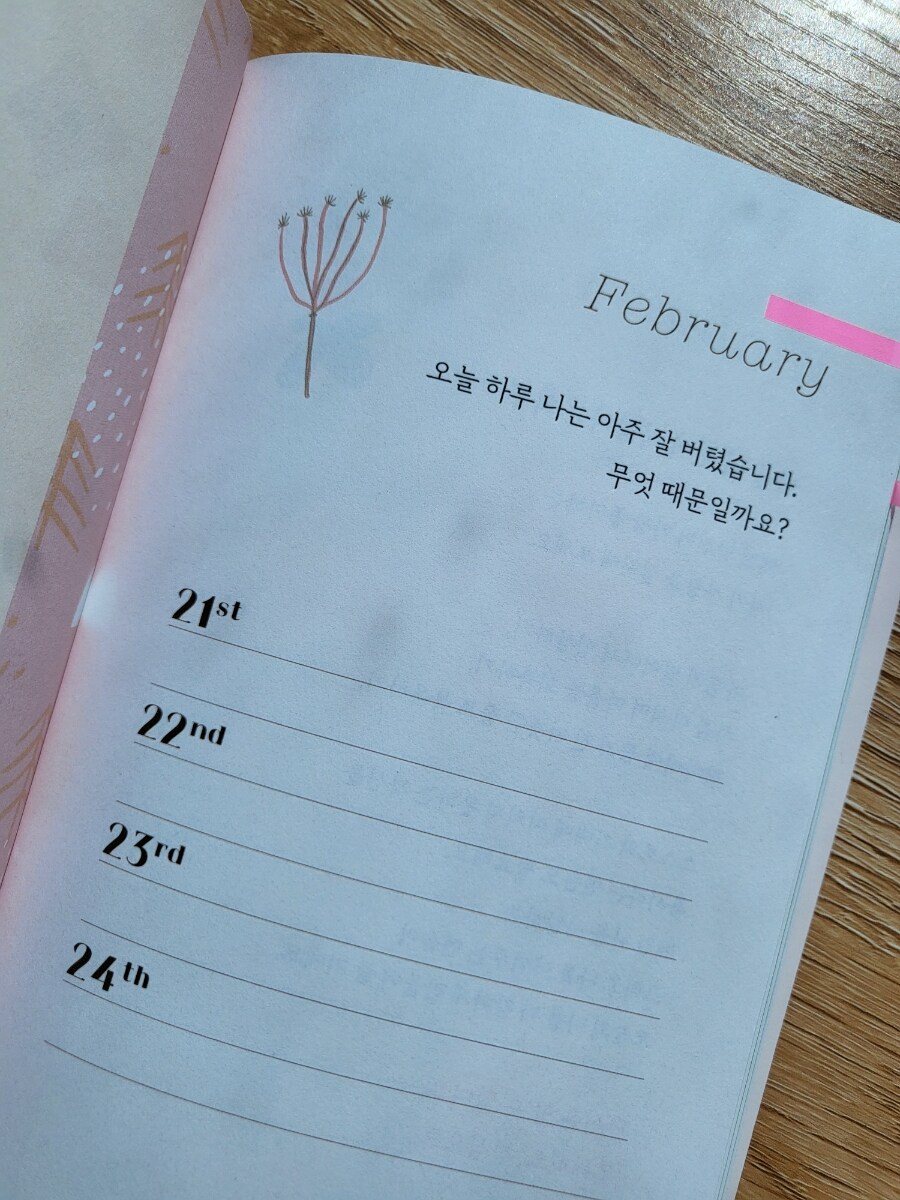 February
오늘 하루 나는 아주 잘 버텼습니다.
무엇 때문일까요?
21st
22nd
23rd
24th